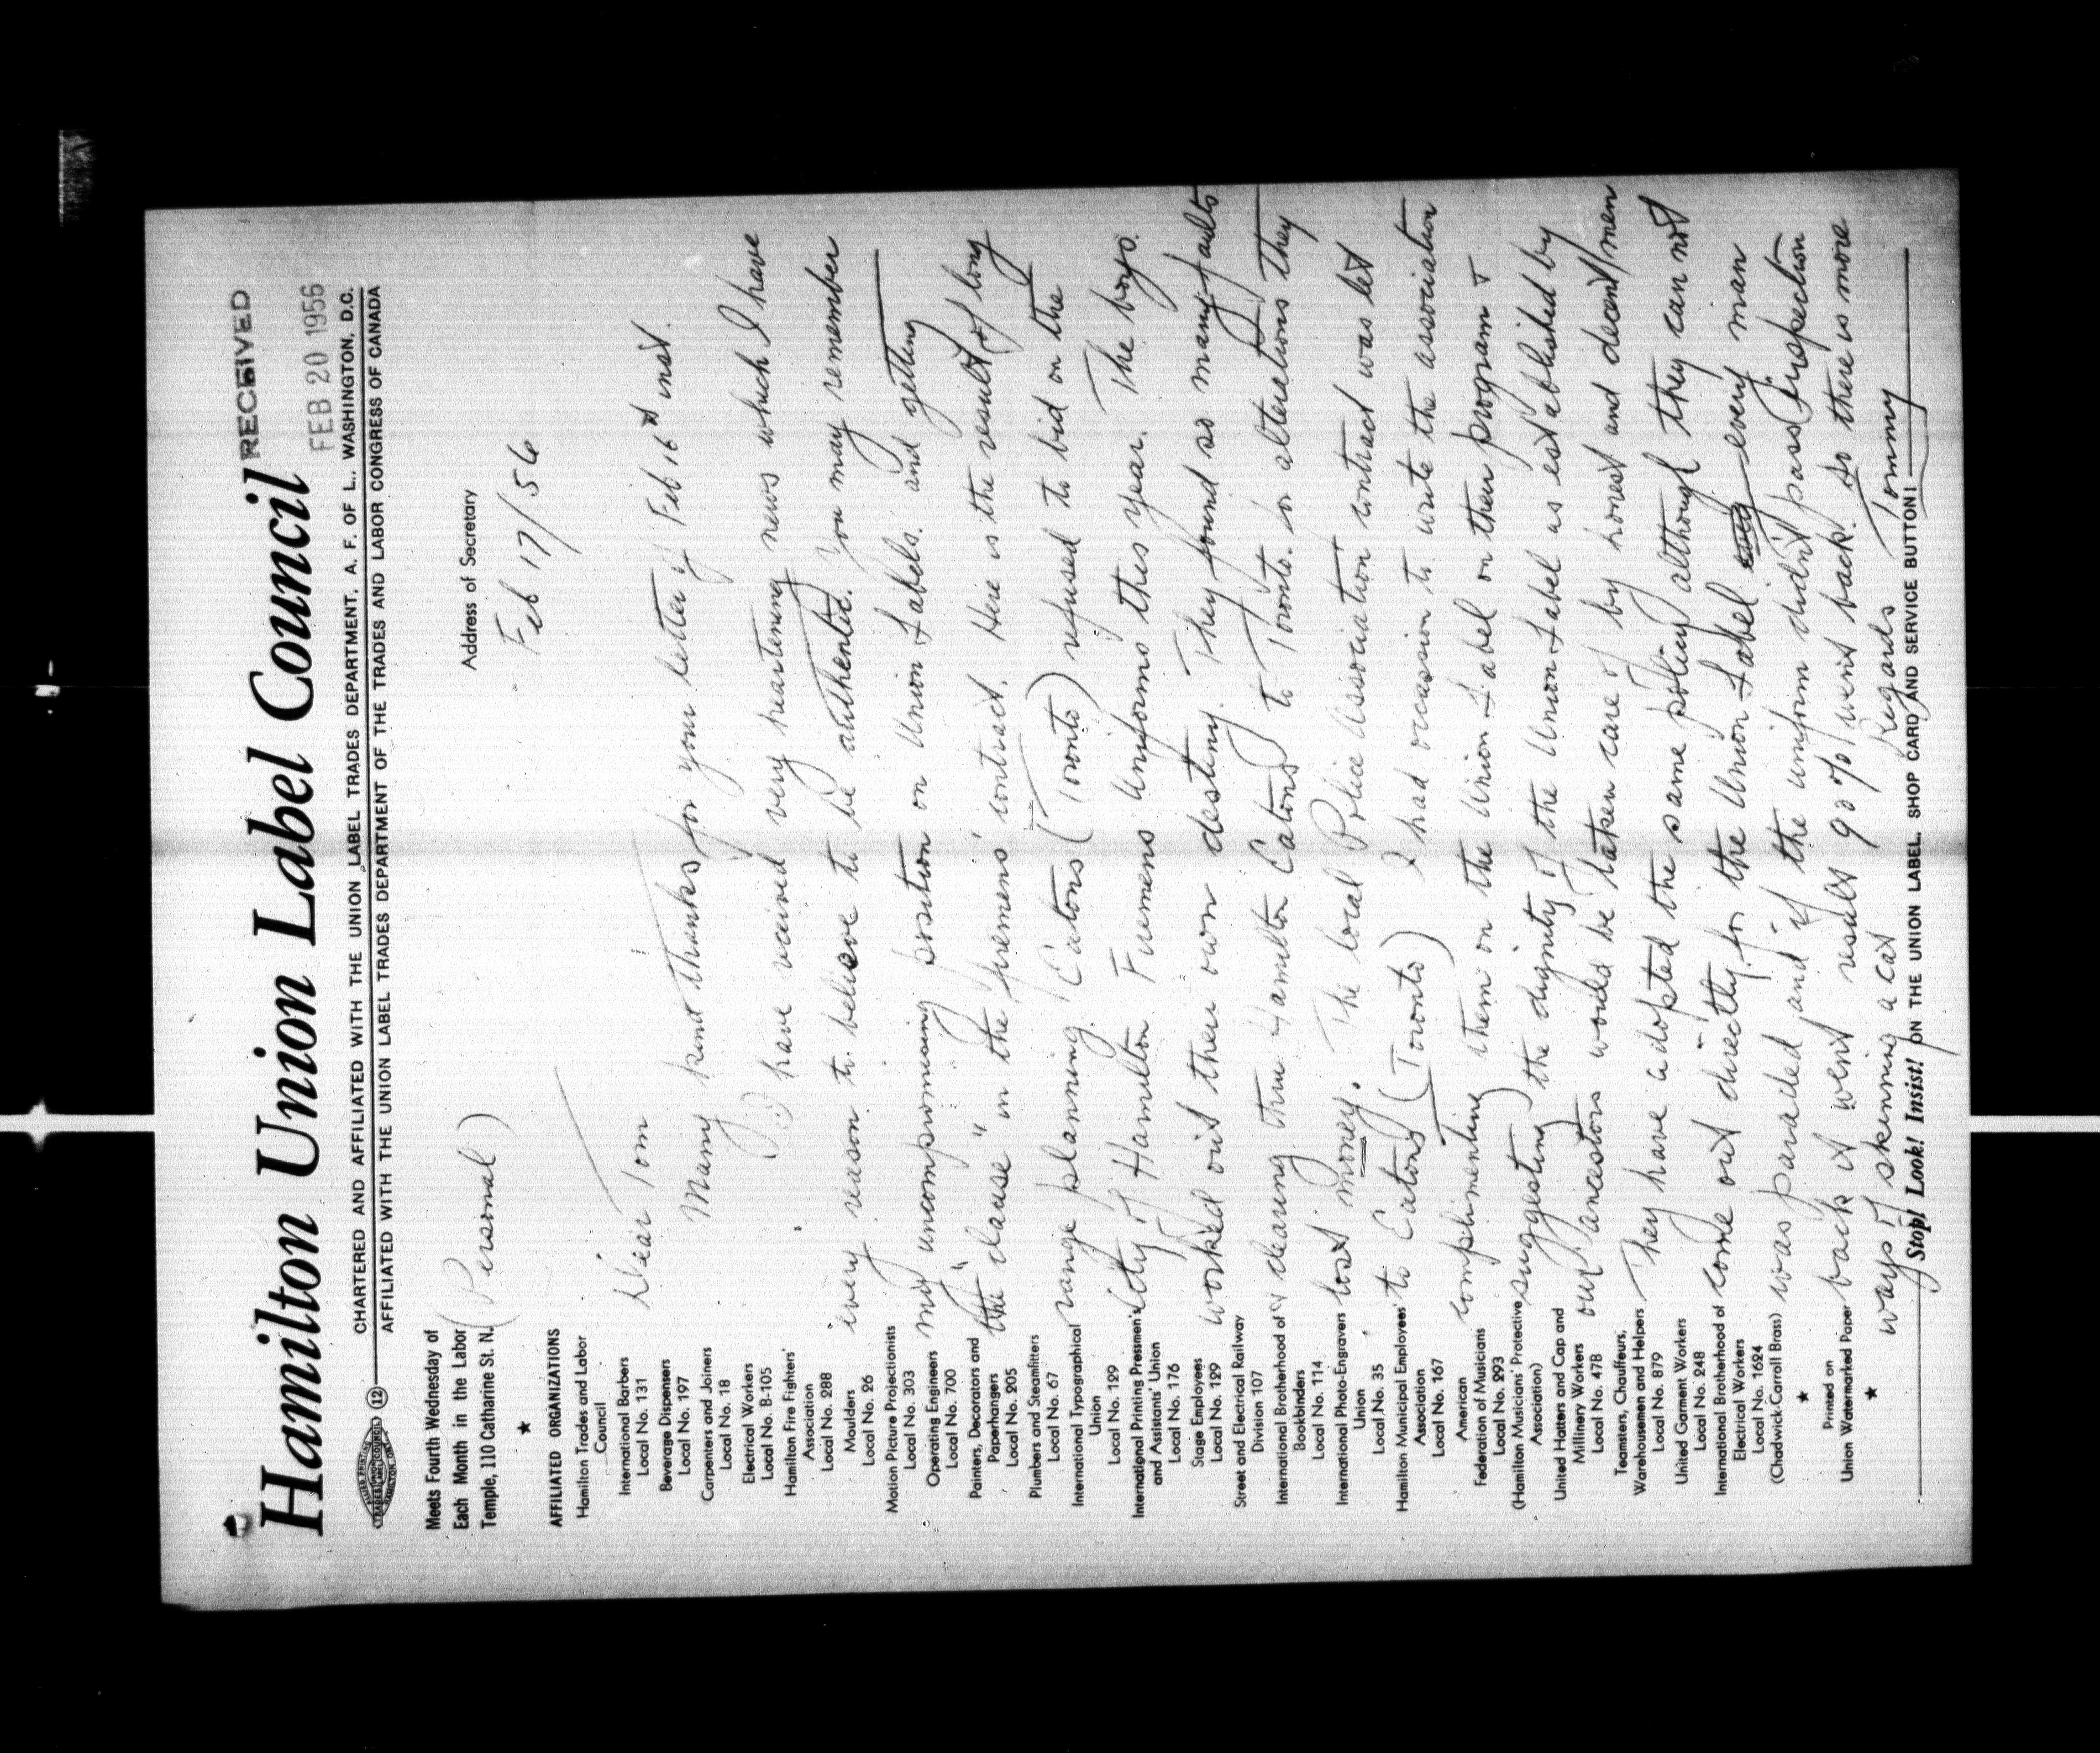 RECEIVED
FEB 20 1956
Hamilton Union Label Council
CHARTERED AND AFFILIATED WITH THE UNION LABEL TRADES DEPARTMENT, A. F. OF L., WASHINGTON, D.C.
12
AFFILIATED WITH THE UNION LABEL TRADES DEPARTMENT OF THE TRADES AND LABOR CONGRESS OF CANADA
Meets Fourth Wednesday of
Each Month in the Labor
Temple, 110 Catharine St. N.
★
AFFILIATED ORGANIZATIONS
Hamilton Trades and Labor
Council
International Barbers
Local No. 131
Beverage Dispensers
Local No. 197
Carpenters and Joiners
Local No. 18
Electrical Workers
Local No. B-105
Hamilton Fire Fighters'
Association
Local No. 288
Moulders
Local No. 26
Motion Picture Projectionists
Local No. 303
Operating Engineers
Local No. 700
Painters, Decorators and
Paperhangers
Local No. 205
Plumbers and Steamfitters
Local No. 67
International Typographical
Union
Local No. 129
International Printing Pressmen's
and Assistants' Union
Local No. 176
Stage Employees
Local No. 129
Street and Electrical Railway
Division 107
International Brotherhood of
Bookbinders
Local No. 114
International Photo-Engravers
Union
Local No. 35
Hamilton Municipal Employees'
Association
Local No. 167
American
Federation of Musicians
Local No. 293
(Hamilton Musicians' Protective
Association)
United Hatters and Cap and
Millinery Workers
Local No. 47B
Teamsters, Chauffeurs,
Warehousemen and Helpers
Local No. 879
United Garment Workers
Local No. 248
International Brotherhood of
Electrical Workers
Local No. 1624
(Chadwick-Carroll Brass)
★
Printed on
Union Watermarked Paper
★
Address of Secretary
(Personal)
Feb 17/56
Dear Tom
Many kind thanks for your letter of Feb 16 inst.
I have received very heartening news which I have
every reason to believe to be authentic. You may remember
my uncompromising position on Union Labels. and getting
the "clause" in the firemens' contract. Here is the result of long
range planning. Eatons (Toronto) refused to bid on the
City of Hamilton Firemens' Uniforms this year. The boys.
worked out their own destiny. They found so many faults
clearing thru Hamilton Eatons to Toronto. for alterations they
lost money. The local Police Association contract was let
to Eatons (Toronto) I had occasion to write the association
complimenting them on the Union Label on their program &
suggesting the dignity of the Union Label as established by
our ancestors would be taken care of by honest and decent men
They have adopted the same policy although they can not
come out directly for the Union Label every man
was paraded and if the uniform didn't pass inspection
back it went result 90% went back. So there is more
ways of skinning a cat
Regards Tommy
Stop! Look! Insist! ON THE UNION LABEL, SHOP CARD AND SERVICE BUTTON!